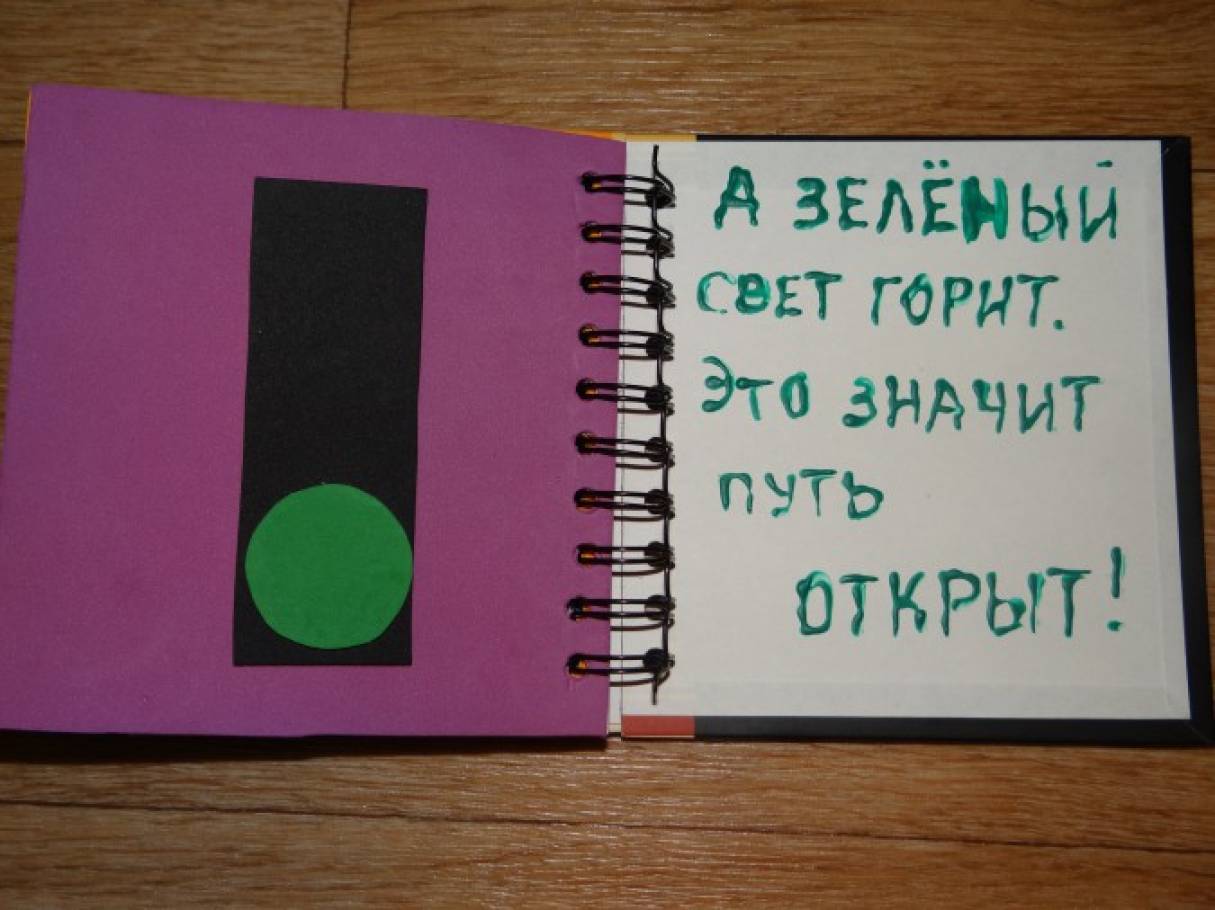 А ЗЕЛЁНЫЙ
СВЕТ ГОРИТ.
ЭТО ЗНАЧИТ
ПУТЬ
ОТКРЫТ!